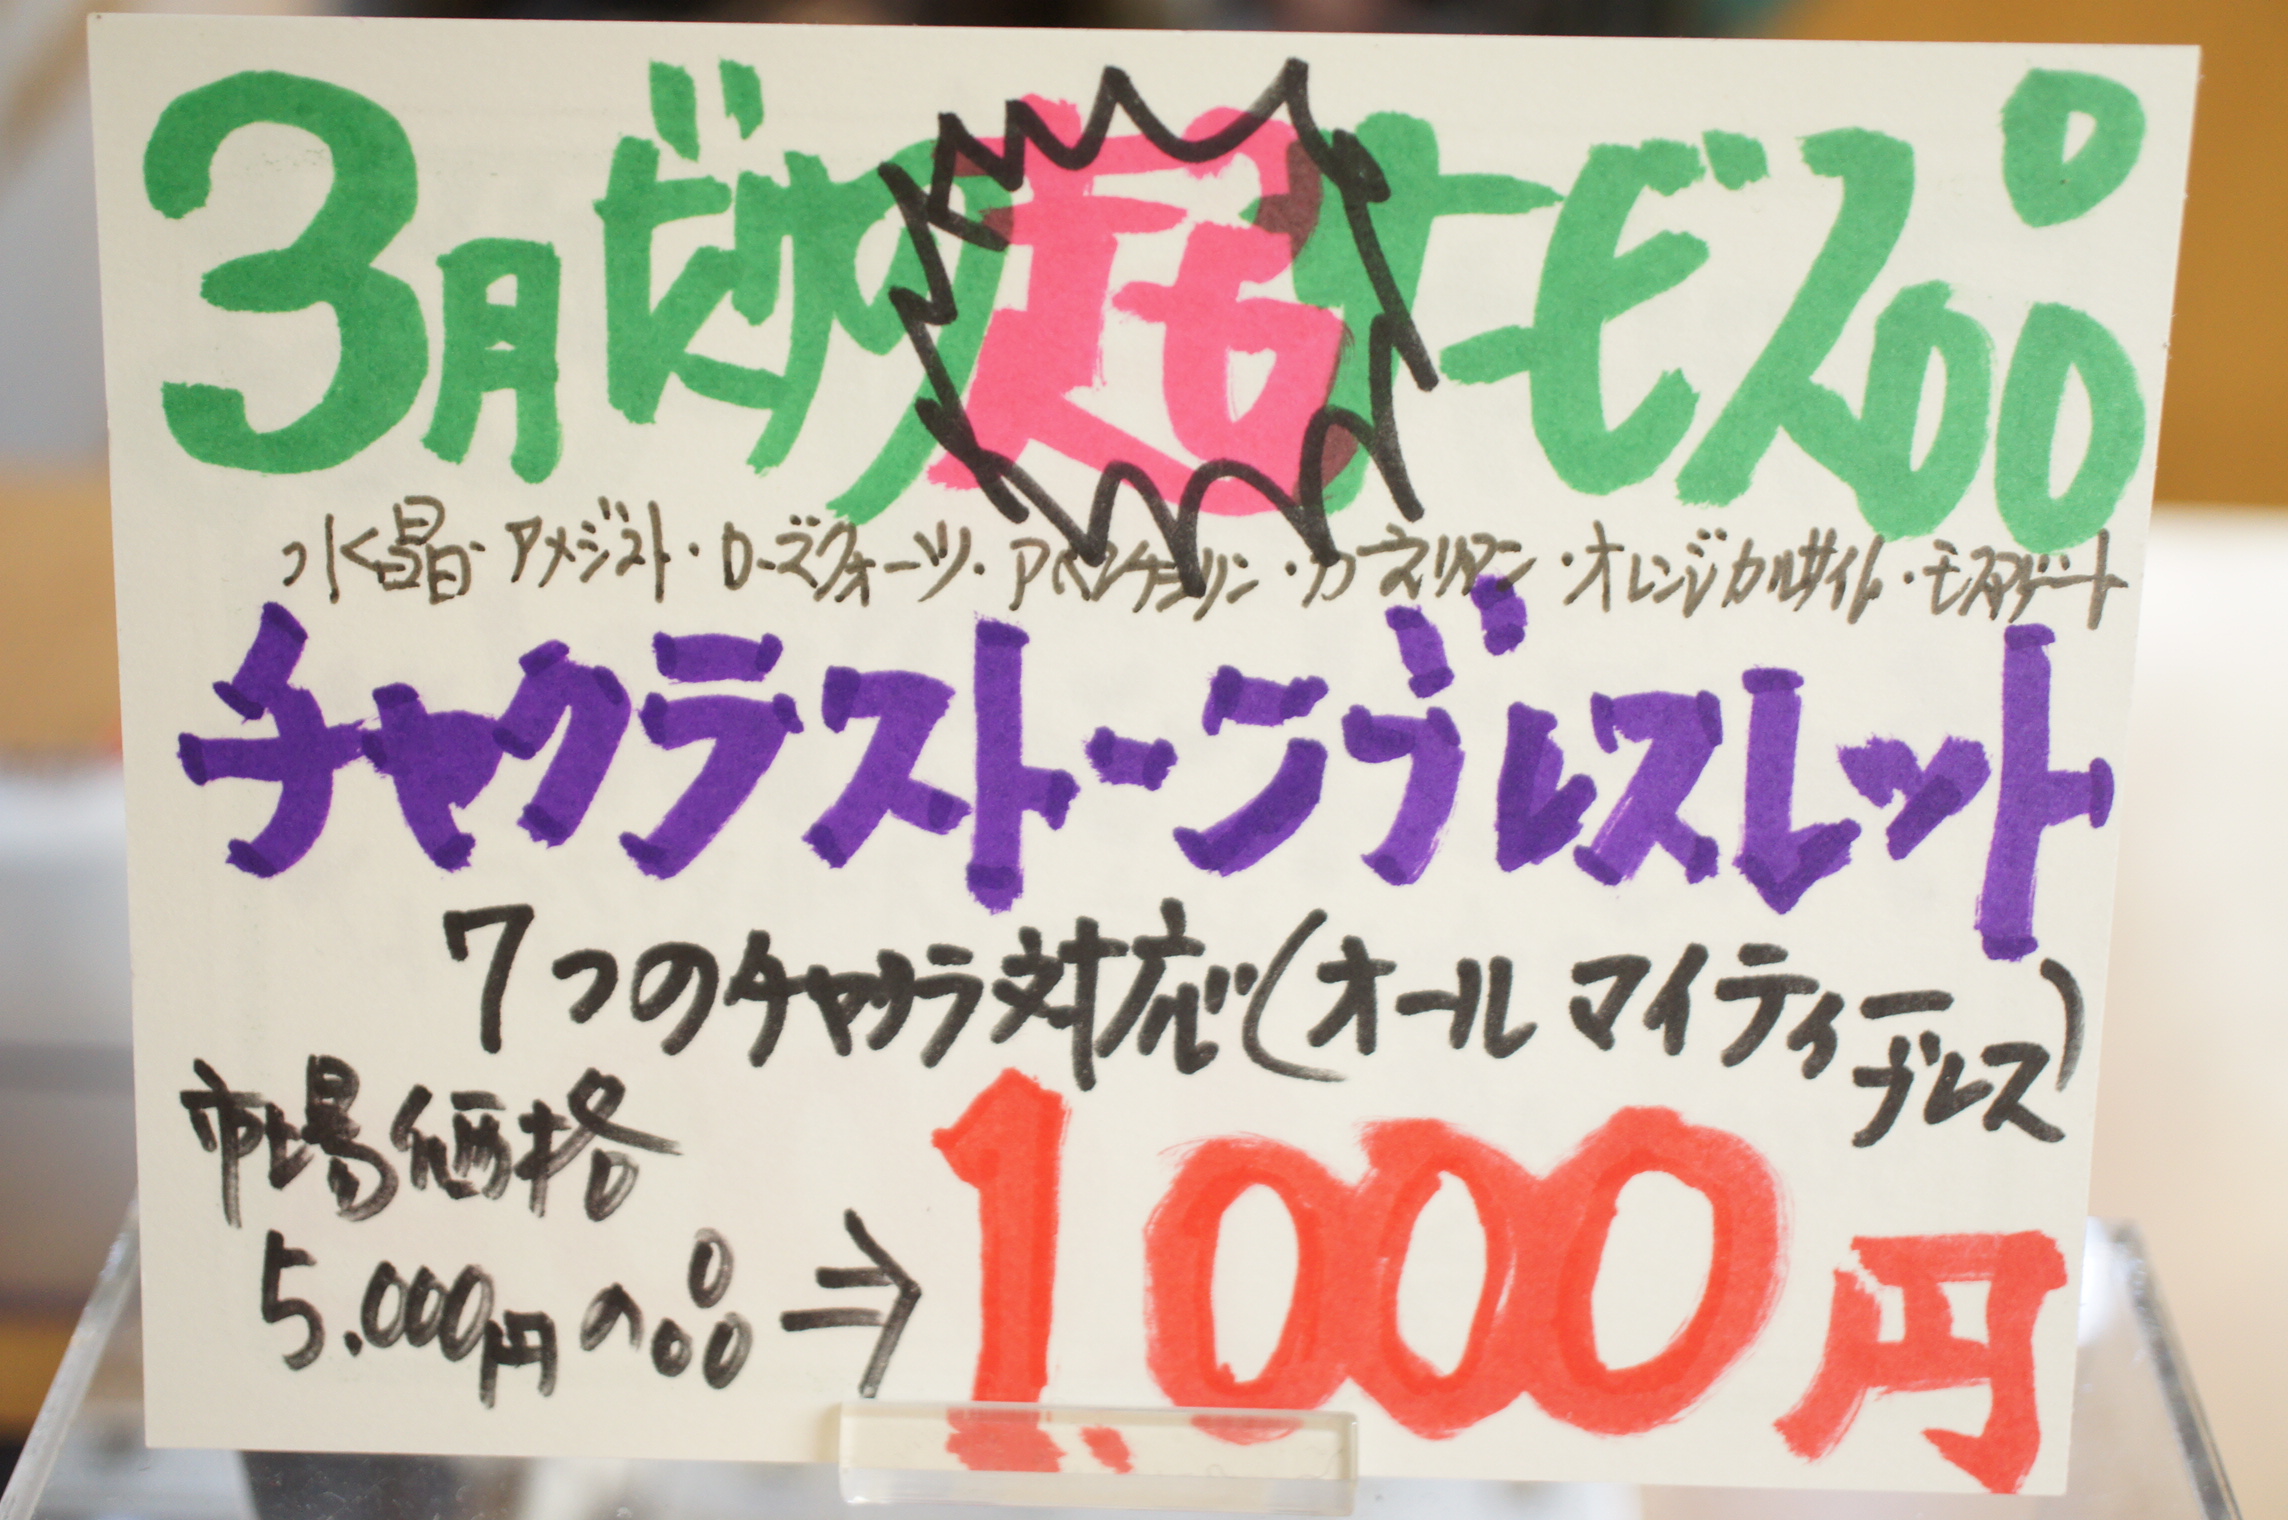 3月ビック超サービス品
水晶・アメジスト・ローズクォーツ・アベンチュリン・カーネリアン・オレンジカルサイト・モスアゲート
チャクラストーンブレスレット
7つのチャクラ対応(オールマイティーブレス)
市場価格
5.000円の品⇒1,000円